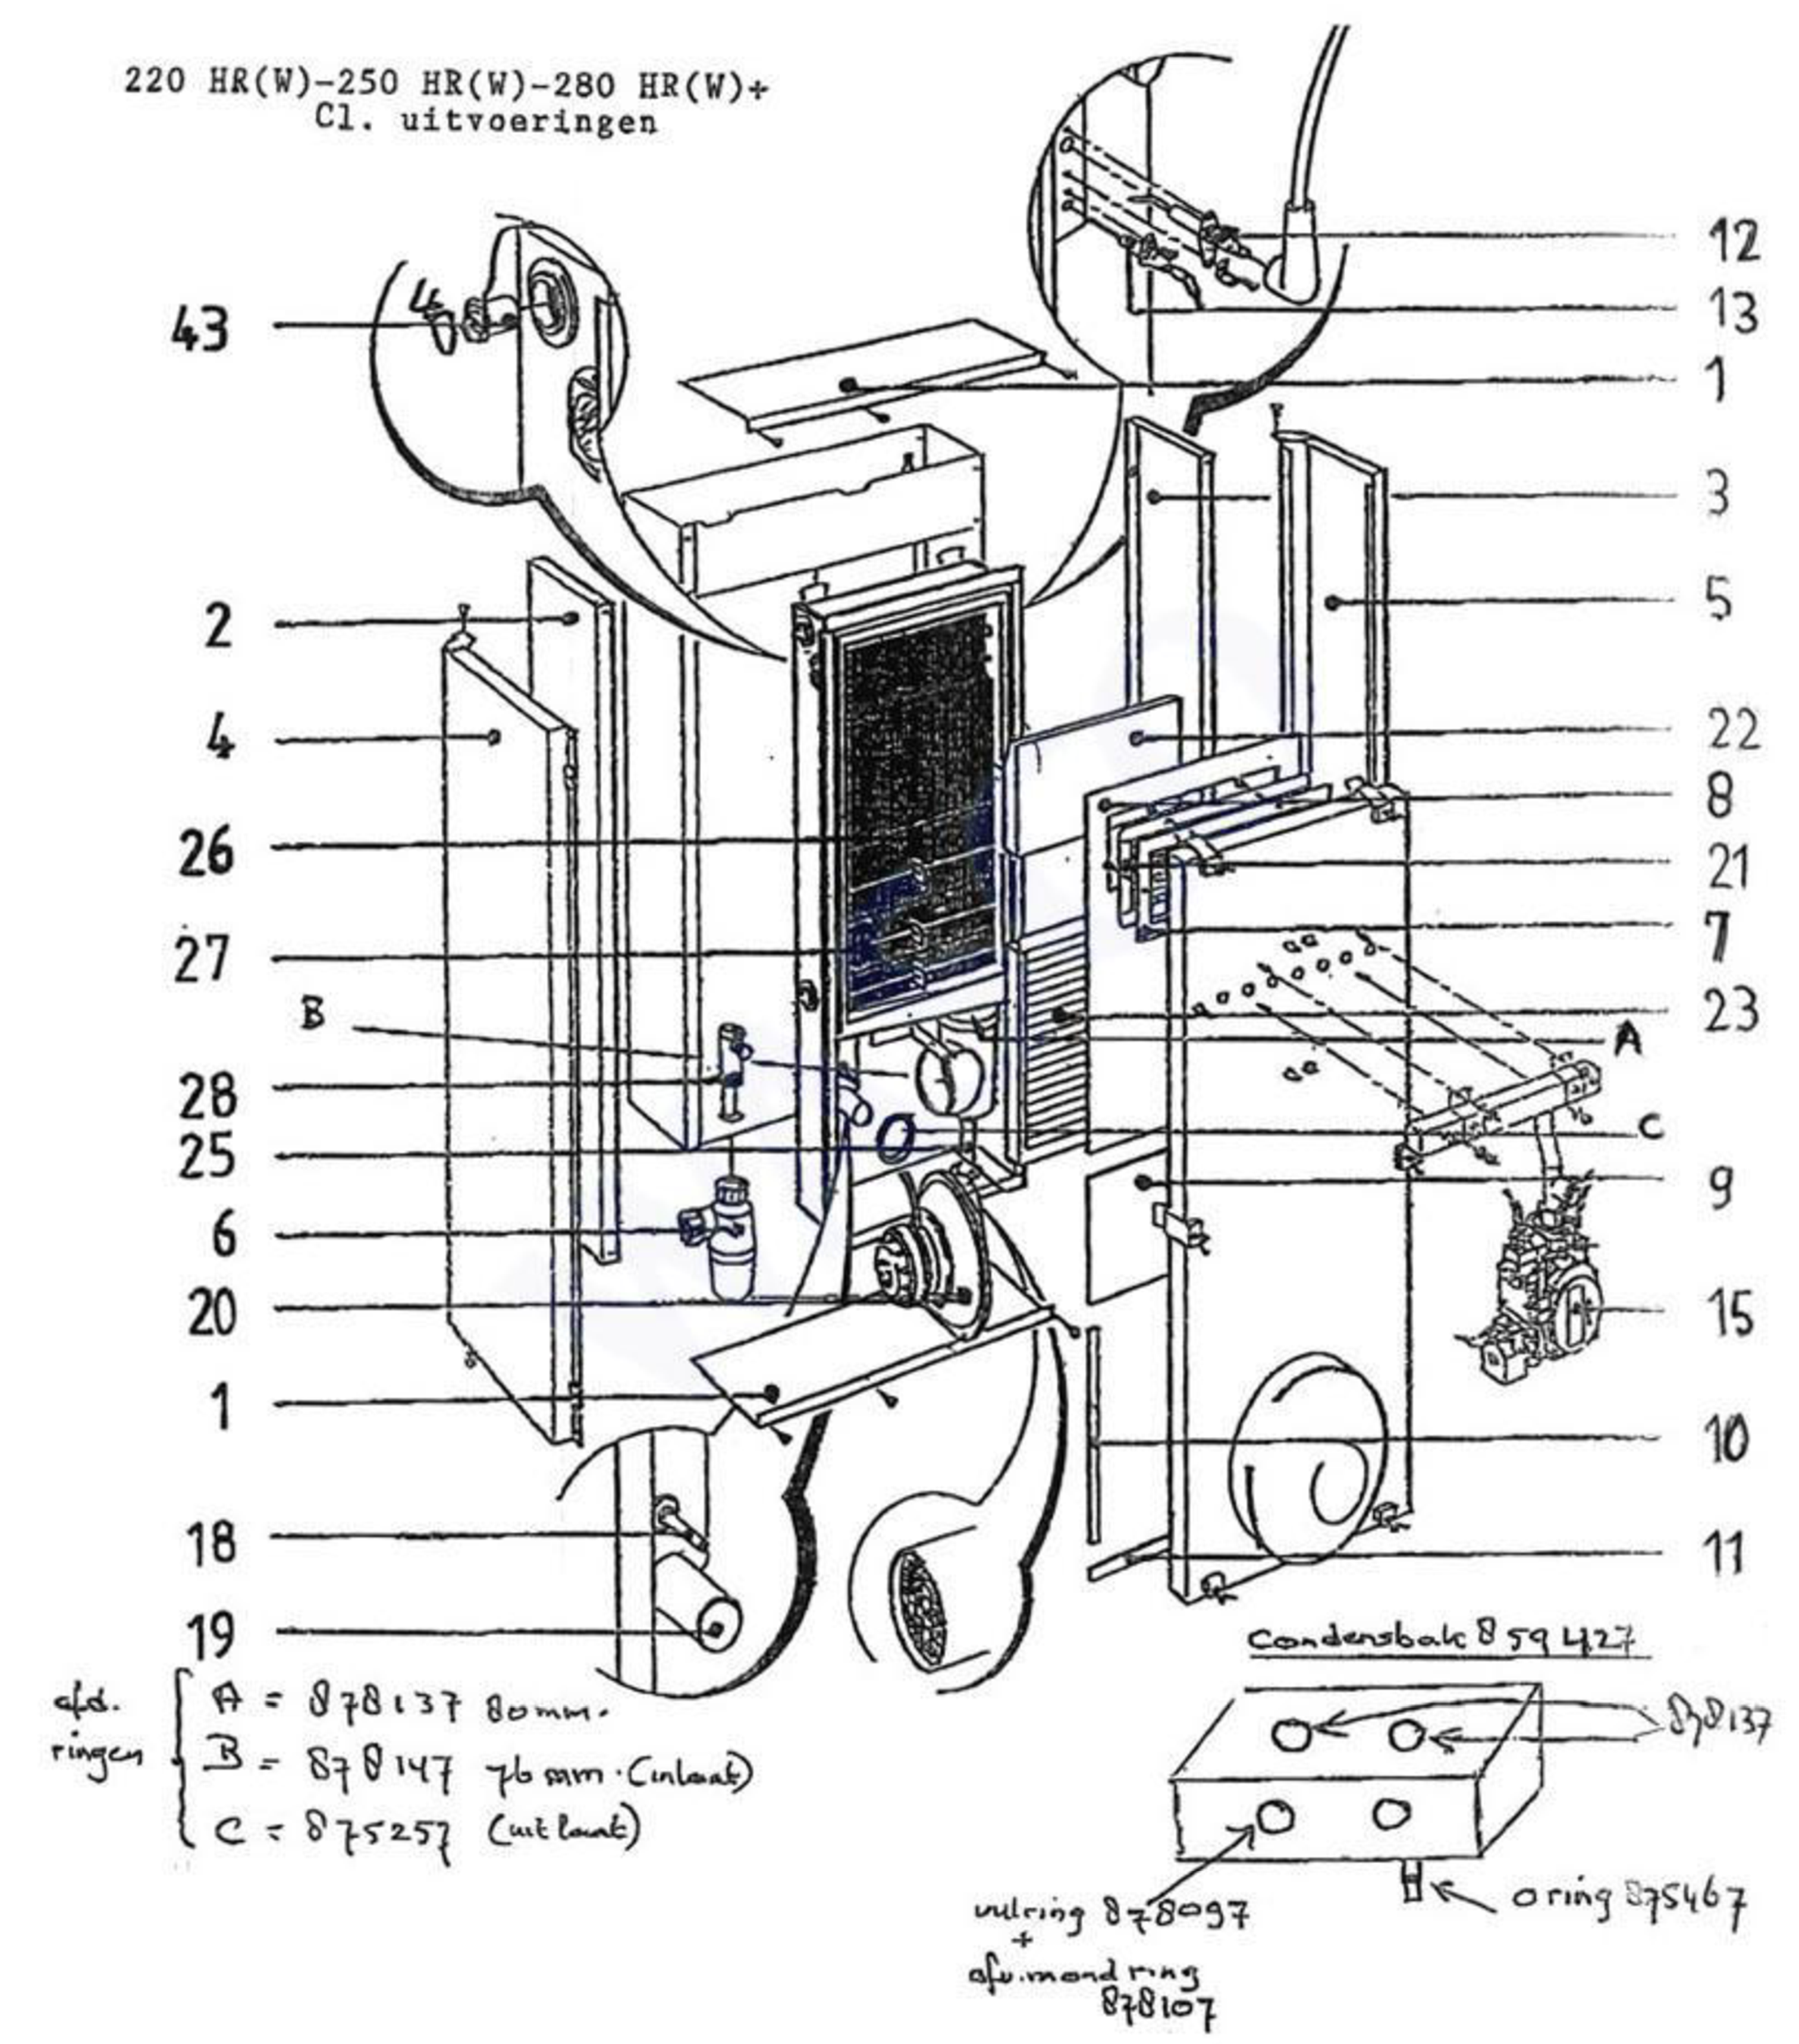 220 HR(W)-250 HR(W)-280 HR(W)+
Cl. uitvoeringen
12
13
43
4
1
3
2
5
4
22
8
26
21
7
27
23
B
A
28
C
25
9
6
20
15
1
10
18
11
19
Condensbak 859427
afd.
ringen
A = 878137 80mm.
B = 878147 76 mm. (inlaat)
C = 875257 (uitlaat)
878137
vulring 878097
+
afv.mondring
878107
o ring 875467